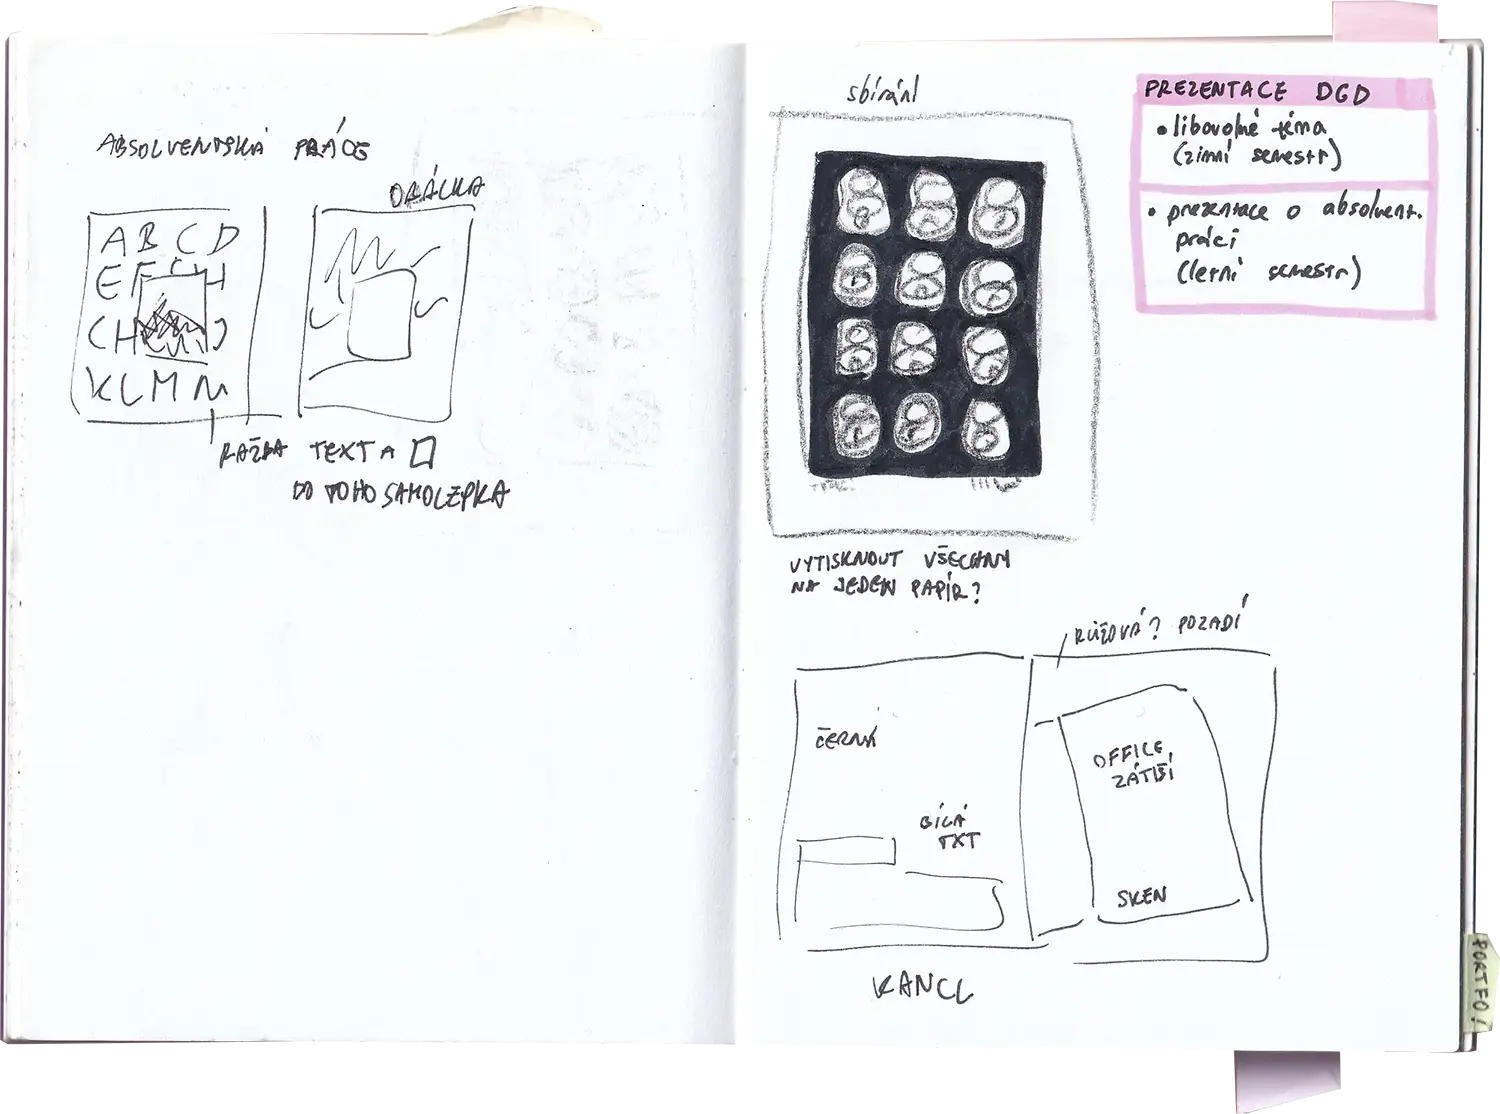 ABSOLVENTSKÁ PRÁCE
OBÁLKA
A B C D
E F G H
CH I J
K L M N
RAŽBA TEXTA
DO TOHO SAMOLEPKA
sbírání
VYTISKNOUT VŠECHNY
NA JEDEN PAPÍR?
PREZENTACE DGD
• libovolné téma
(zimní semestr)
• prezentace o absolvent.
práci
(letní semestr)
RŮŽOVÁ? POZADÍ
ČERNÁ
BÍLÁ
TXT
OFFICE
ZÁTIŠÍ
SKEN
KANCL
PORTFO!